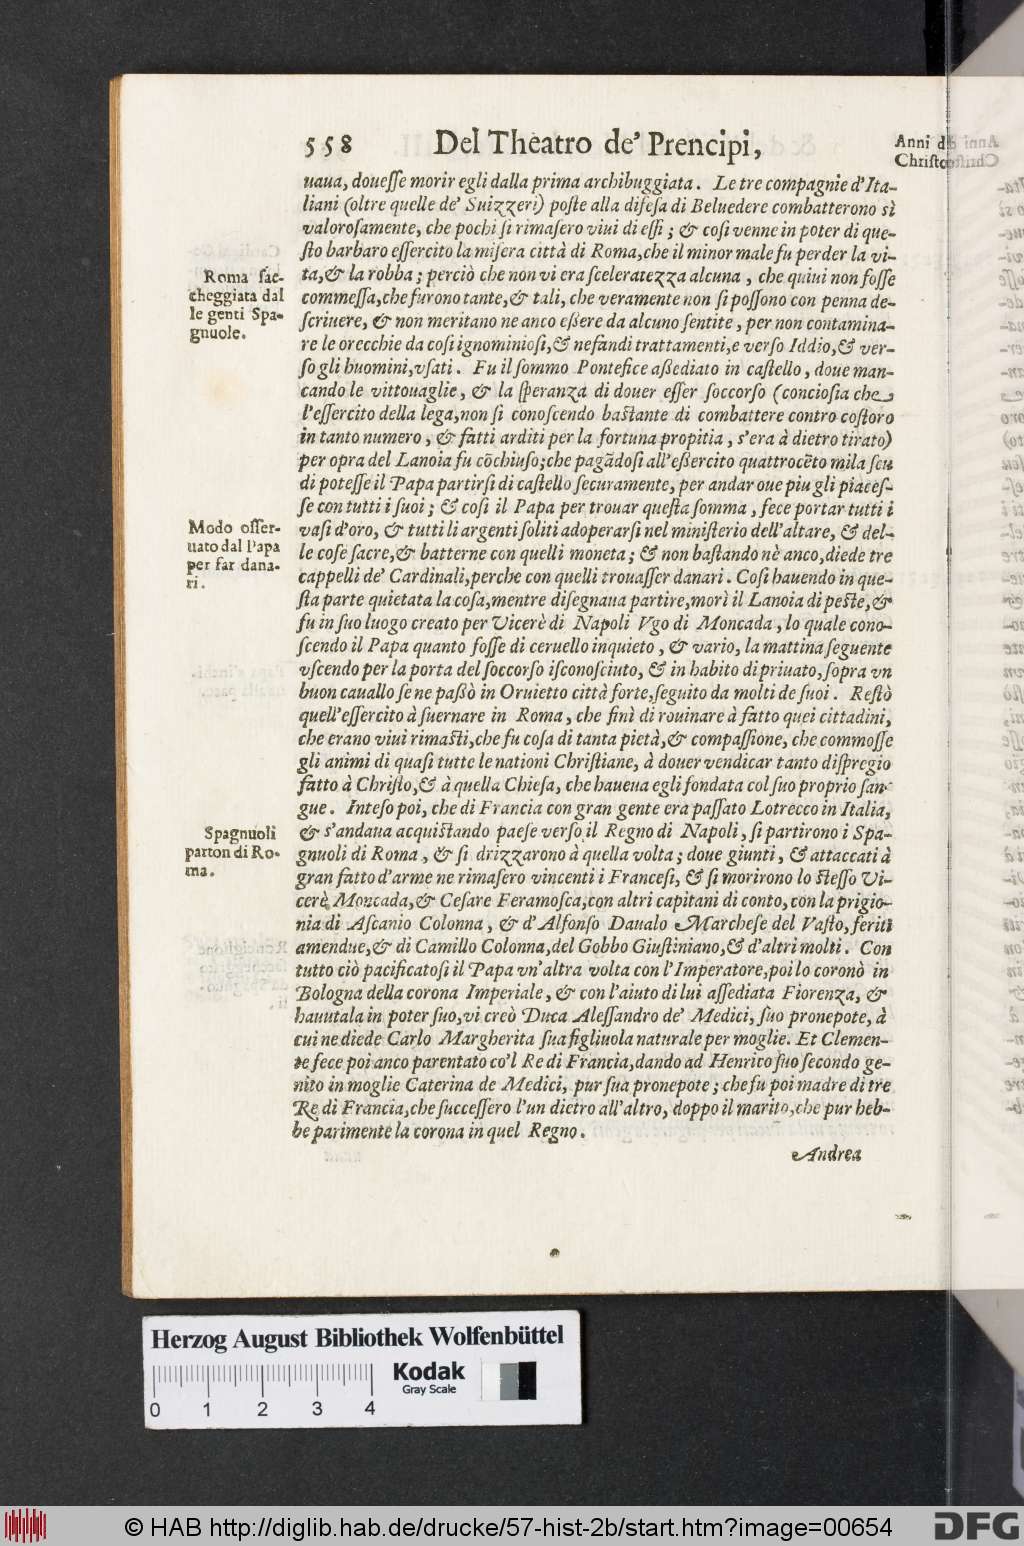 558 Del Theatro de' Prencipi,
Anni di
Christo
uaua, doueſſe morir egli dalla prima archibuggiata. Le tre compagnie d'Ita-
liani (oltre quelle de' Suizzeri) poſte alla difeſa di Beluedere combatterono sì
valoroſamente, che pochi ſi rimaſero viui di eſſi; & coſi venne in poter di que-
ſto barbaro eſſercito la miſera città di Roma, che il minor male fu perder la vi-
ta, & la robba; perciò che non vi era ſceleratezza alcuna, che quiui non foſſe
commeſſa, che furono tante, & tali, che veramente non ſi poſſono con penna de-
ſcriuere, & non meritano ne anco eßere da alcuno ſentite, per non contamina-
re le orecchie da coſi ignominioſi, & nefandi trattamenti, e verſo Iddio, & ver-
ſo gli huomini, vſati. Fu il ſommo Pontefice aßediato in caſtello, doue man-
cando le vittouaglie, & la ſperanza di douer eſſer ſoccorſo (concioſia che
l'eſſercito della lega, non ſi conoſcendo baſtante di combattere contro coſtoro
in tanto numero, & fatti arditi per la fortuna propitia, s'era à dietro tirato)
per opra del Lanoia fu cõchiuſo; che pagãdoſi all'eßercito quattrocẽto mila ſcu
di poteſſe il Papa partirſi di caſtello ſecuramente, per andar oue piu gli piaceſ-
ſe con tutti i ſuoi; & coſi il Papa per trouar queſta ſomma, fece portar tutti i
vaſi d'oro, & tutti li argenti ſoliti adoperarſi nel miniſterio dell'altare, & del-
le coſe ſacre, & batterne con quelli moneta; & non baſtando nè anco, diede tre
cappelli de' Cardinali, perche con quelli trouaſſer danari. Coſi hauendo in que-
ſta parte quietata la coſa, mentre diſegnaua partire, morì il Lanoia di peſte, &
fu in ſuo luogo creato per Vicerè di Napoli Vgo di Moncada, lo quale cono-
ſcendo il Papa quanto foſſe di ceruello inquieto, & vario, la mattina ſeguente
vſcendo per la porta del ſoccorſo iſconoſciuto, & in habito di priuato, ſopra vn
buon cauallo ſe ne paßò in Oruietto città forte, ſeguito da molti de ſuoi. Reſtò
quell'eſſercito à ſuernare in Roma, che finì di rouinare à fatto quei cittadini,
che erano viui rimaſti, che fu coſa di tanta pietà, & compaſſione, che commoſſe
gli animi di quaſi tutte le nationi Chriſtiane, à douer vendicar tanto diſpregio
fatto à Chriſto, & à quella Chieſa, che haueua egli fondata col ſuo proprio ſan-
gue. Inteſo poi, che di Francia con gran gente era paſſato Lotrecco in Italia,
& s'andaua acquiſtando paeſe verſo il Regno di Napoli, ſi partirono i Spa-
gnuoli di Roma, & ſi drizzarono à quella volta; doue giunti, & attaccati à
gran fatto d'arme ne rimaſero vincenti i Franceſi, & ſi morirono lo ſteſſo Vi-
cerè, Moncada, & Ceſare Feramoſca, con altri capitani di conto, con la prigio-
nia di Aſcanio Colonna, & d'Alfonſo Daualo Marcheſe del Vaſto, feriti
amendue, & di Camillo Colonna, del Gobbo Giuſtiniano, & d'altri molti. Con
tutto ciò pacificatoſi il Papa vn'altra volta con l'Imperatore, poi lo coronò in
Bologna della corona Imperiale, & con l'aiuto di lui aſſediata Fiorenza, &
hauutala in poter ſuo, vi creò Duca Aleſſandro de' Medici, ſuo pronepote, à
cui ne diede Carlo Margherita ſua figliuola naturale per moglie. Et Clemen-
te fece poi anco parentato co'l Re di Francia, dando ad Henrico ſuo ſecondo ge-
nito in moglie Caterina de Medici, pur ſua pronepote; che fu poi madre di tre
Re di Francia, che ſucceſſero l'un dietro all'altro, doppo il marito, che pur heb-
be parimente la corona in quel Regno.
Andrea
Roma ſac-
cheggiata dal
le genti Spa-
gnuole.
Modo oſſer-
uato dal Papa
per far dana-
ri.
Spagnuoli
parton di Ro-
ma.
Herzog August Bibliothek Wolfenbüttel
Kodak
Gray Scale
0 1 2 3 4
© HAB http://diglib.hab.de/drucke/57-hist-2b/start.htm?image=00654
DFG